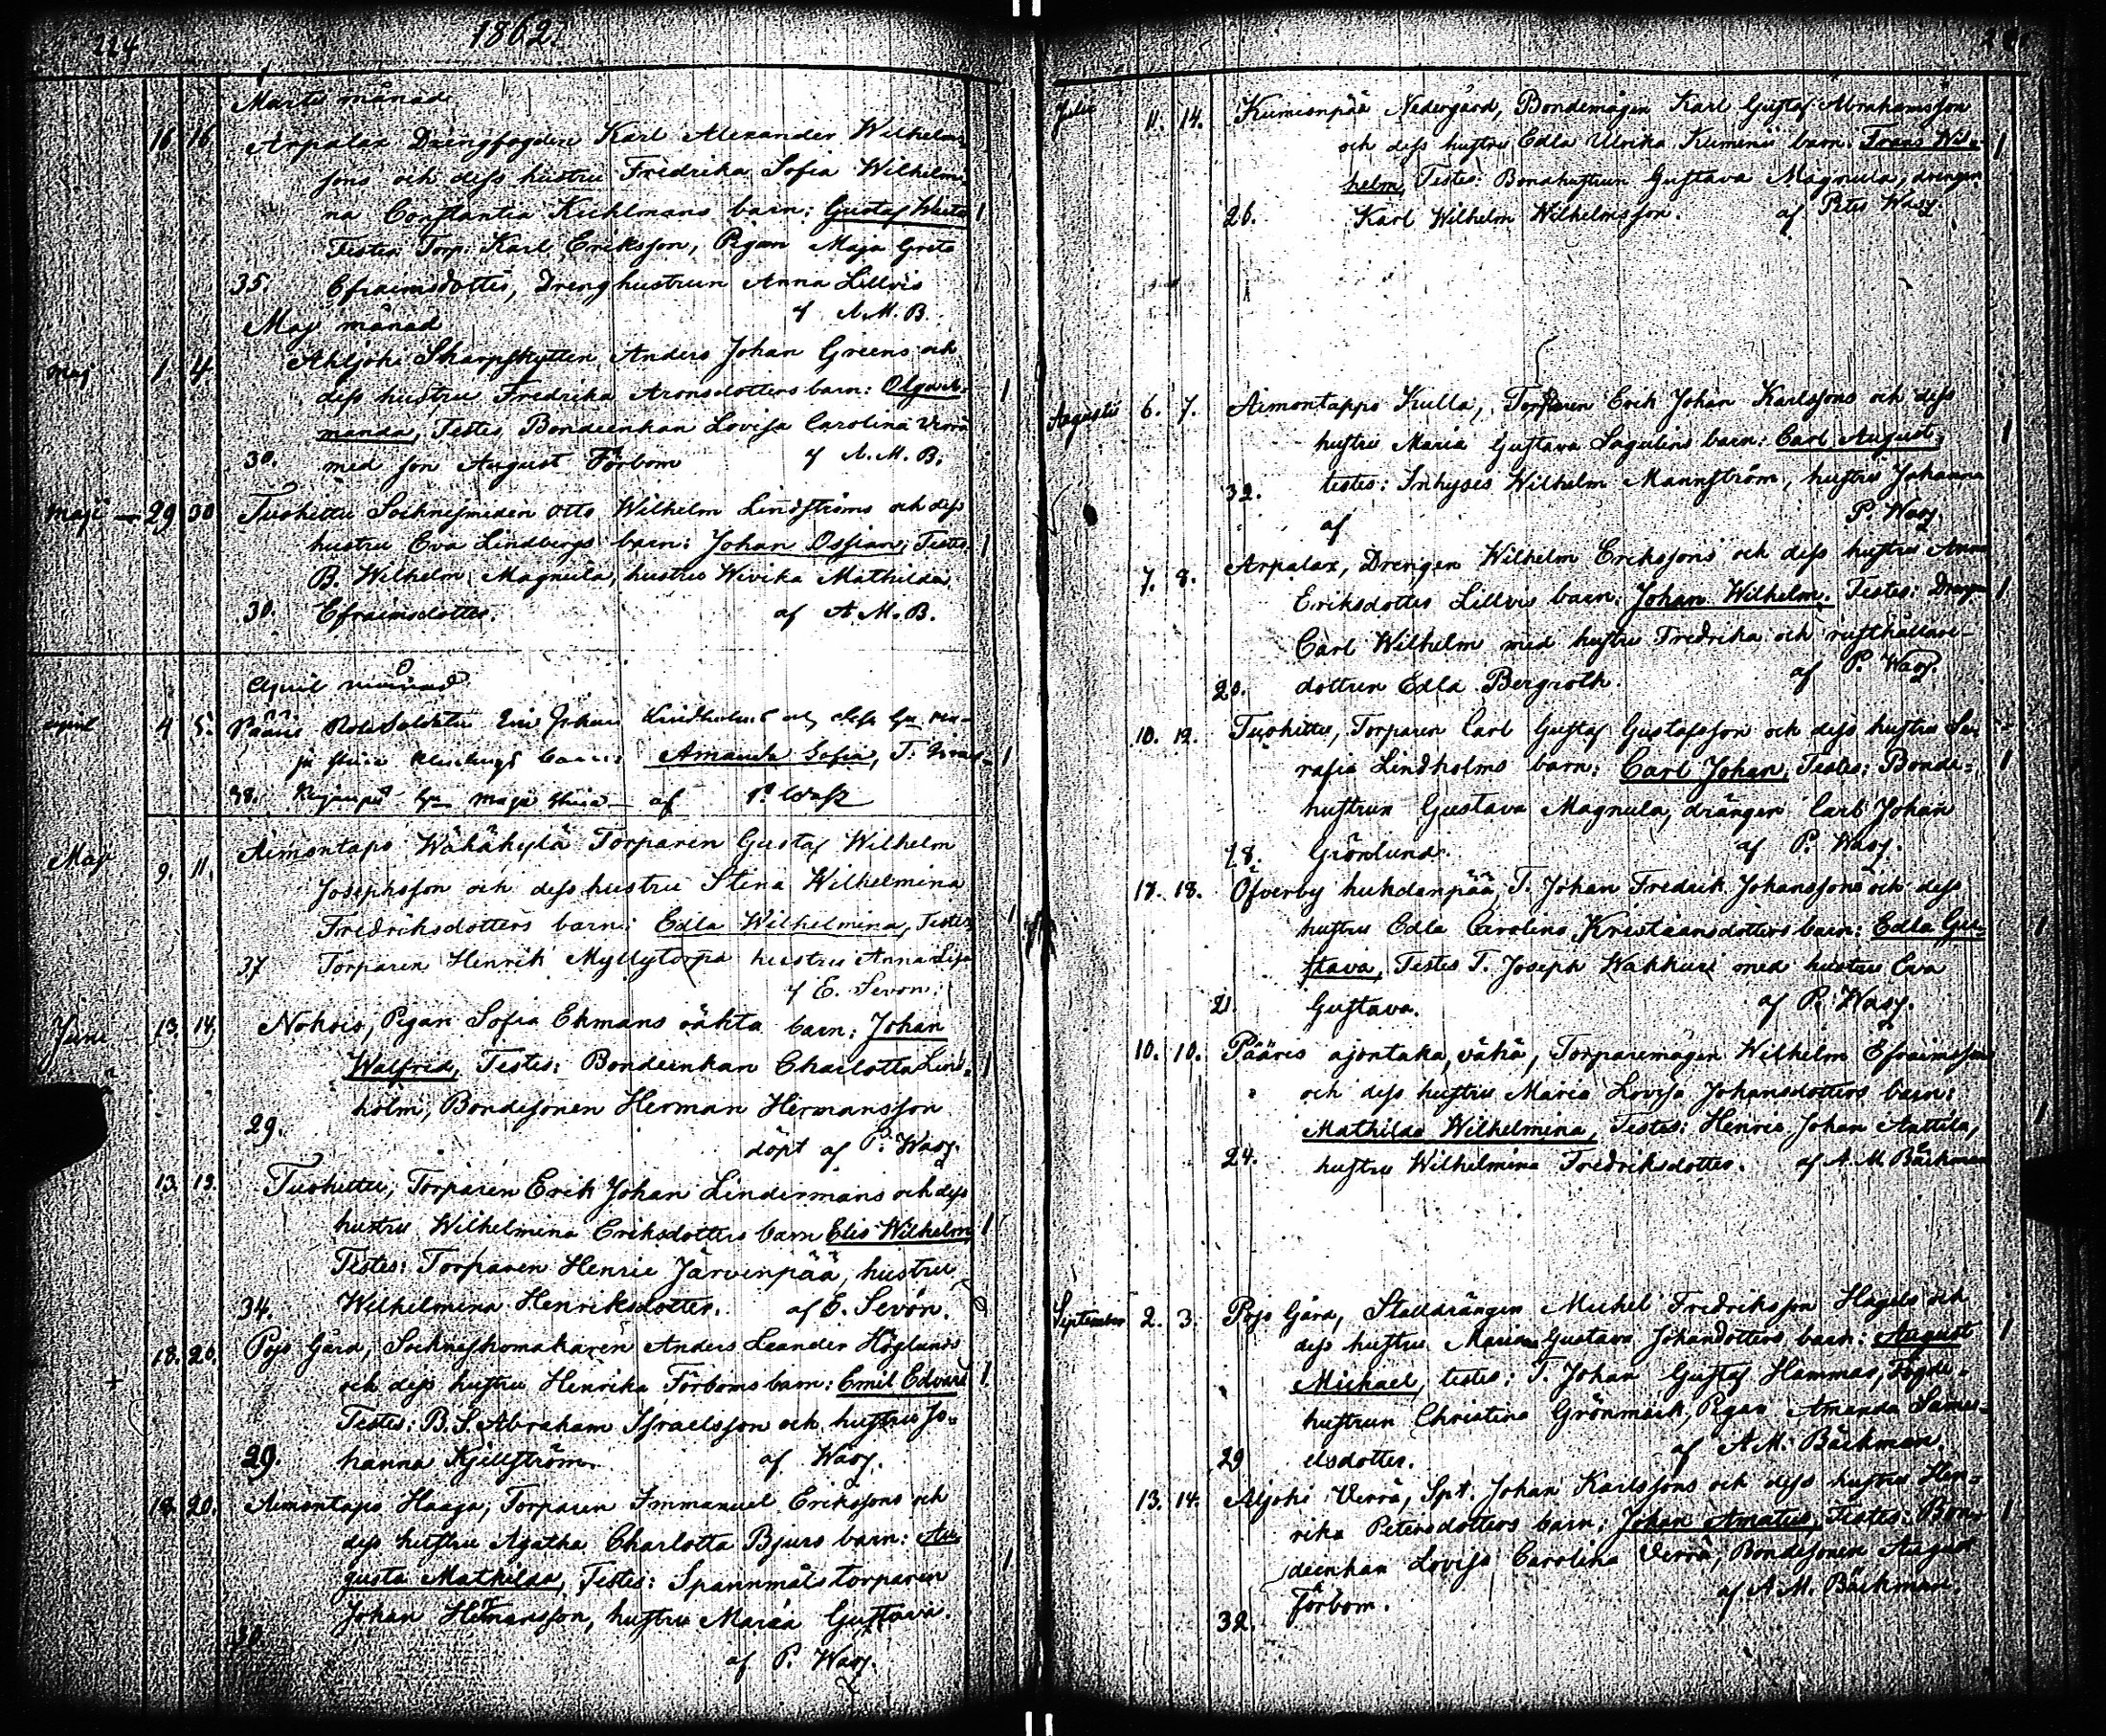 224
1862.
Marti månad
16 16 Arpalax Drengfogden Karl Alexander Wilhelms-
sons och dess hustru Fredrika Sofia Wilhelmi-
na Constantia Kuhlmans barn: Gustaf 1
Testes Torp. Karl Eriksson, Pigan Maja Greta
35. Efraimsdotter, Drenghustrun Anna Lillvis
af A. M. B.
Maj månad
Maj 1 4 Ahljoki Skarpskytten Anders Johan Greens och
dess hustru Fredrika Aronsdotters barn: Olga A- 1
manda, Testes Bondeenkan Lovisa Carolina Verrä
30. med son August Förbom af A. M. B.
Maji — 29 30 Tuohittu Socknesmeden Otto Wilhelm Lindströms och dess
hustru Eva Lindbergs barn: Johan Ossian; Testes 1
B. Wilhelm Magnula, hustru Wivika Mathilda
30. Efraimsdotter. af A. M. B.
April månad
april 4 5. Pääris Rote Soldaten Johan och dess
barn: Amanda Sofia, T. 1
38. Maja Stina — af P. Wasz
Maji 9. 11. Aimontapo Wähäkylä Torparen Gustaf Wilhelm
Josephsson och dess hustru Stina Wilhelmina
Fredriksdotters barn: Edla Wilhelmina, Testes 1
37 Torparen Henrik Myllytorpa hustru Anna Lisa
af E. Sevon.
Juni 13. 14. Nokois, Pigan Sofia Ekmans oäkta barn: Johan
Walfrid, Testes: Bondeenkan Charlotta Lind- 1
holm, Bondesonen Herman Hermansson
29. döpt af P. Wasz.
13. 13. Tuohittu, Torparen Erik Johan Lindermans och dess
hustru Wilhelmina Eriksdotters barn Elis Wilhelm 1
Testes: Torparen Henric Järvenpää, hustru
34. Wilhelmina Henriksdotter. af E. Sevón.
18. 20. Pojo Gård, Sockneskomakaren Anders Leander Höglunds
och dess hustru Henrika Förboms barn: Emil Edvard 1
Testes: B. S. Abraham Israelsson och hustru Jo-
29. hanna Kjellström. af Wasz.
18. 20. Aimontapo Haaga, Torparen Immanuel Erikssons och
dess hustru Agatha Charlotta Bjurs barn: Au-
gusta Mathilda, Testes: Spannmålstorparen 1
Johan Hemansson, hustru Maria Gustava.
30
af P. Wasz.
Julii 11. 14. Kumionpää Nedergård, Bondemågen Karl Gustaf Abrahamsson
och dess hustru Edla Ulrika Kumenii barn: Frans Wil- 1
helm, Testes: Bondhustrun Gustava Magnula, drengen
26. Karl Wilhelm Wilhelmsson. af Peter Wasz.
Augusti 6. 7. Aimontappo Kulla, Torparen Erik Johan Karlssons och dess
hustru Maria Gustava Sagulins barn: Carl August, 1
32. testes: Inhyses Wilhelm Mannström, hustru Johanna
af P. Wasz.
7. 8. Arpalax, Drengen Wilhelm Erikssons och dess hustru Anna
Eriksdotter Lillvis barn: Johan Wilhelm. Testes: Drengen 1
Carl Wilhelm med hustru Fredrika och rusthållare-
20. dottren Edla Bergroth. af P. Wasz.
10. 12. Tuohittu, Torparen Carl Gustaf Gustafsson och dess hustru Se-
rafia Lindholms barn: Carl Johan, Testes: Bonde- 1
hustrun Gustava Magnula, drängen Carl Johan
28. Grönlund. af P. Wasz.
17. 18. Öfverby huhdanpää, T. Johan Fredrik Johanssons och dess
hustru Edla Carolina Kristiansdotters barn: Edla Gu- 1
stava, Testes T. Joseph Wakkuri med hustru Eva
21. Gustava. af P. Wasz.
10. 10. Pääris ajontaka, vähä, Torparemågen Wilhelm Efraimsson
och dess hustru Maria Lovisa Johansdotters barn:
Mathilda Wilhelmina, Testes: Henric Johan Anttila, 1
24. hustru Wilhelmina Fredriksdotter. af A. M. Bäckman
September 2. 3. Pojo Gård, Stalldrängen Michel Fredriksson Hagels och
dess hustru Maria Gustava Johansdotters barn: August 1
Michael, testes: T. Johan Gustaf Hammar, Fogde-
hustrun Christina Grönmark, Pigan Amanda Samu-
29 elsdotter. af A. M. Bäckman.
13. 14. Aljoki Verrä, Spt. Johan Karlssons och dess hustru Hen-
rika Petersdotters barn: Johan Amatus, Testes: Bon- 1
deenkan Lovisa Carolina Verrä, Bondesonen August
32. Förbom. af A. M. Bäckman.